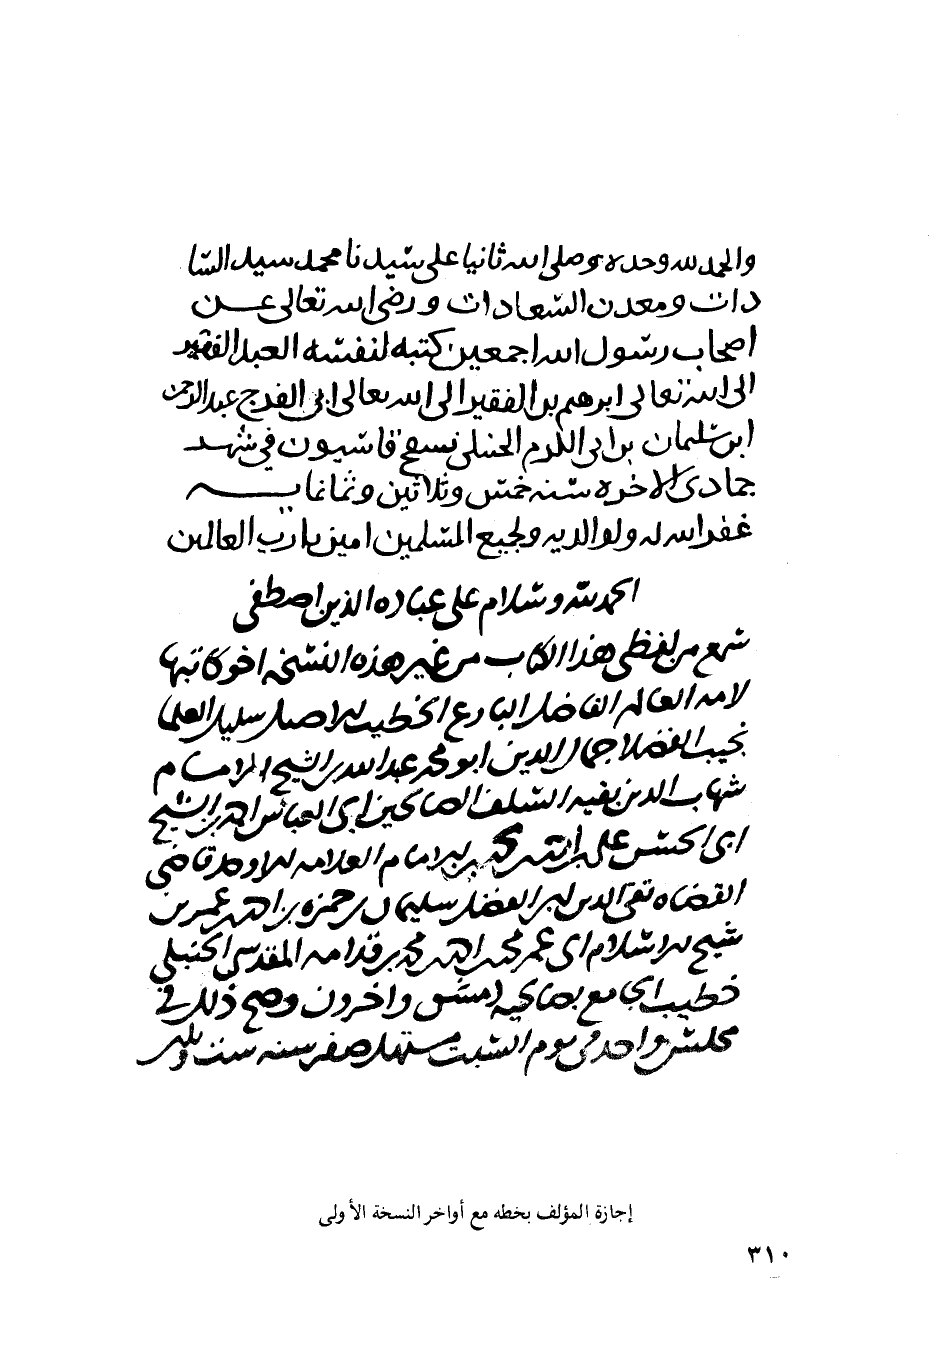 والحمد لله وحده وصلى الله ثانيا على سيدنا محمد سيد السا
دات ومعدن السعادات ورضى الله تعالى عن
اصحاب رسول الله اجمعين كتبه لنفسه العبد الفقير
الى الله تعالى ابرهيم بن الفقير الى الله تعالى ابى الفرج عبد الرحمن
ابن سليمان بن ابى الكرم الحنبلى بسفح قاسيون في شهر
جمادى الاخره سنه خمس وثلاثين وثمانمايه
غفر الله له ولوالديه ولجميع المسلمين امين يا رب العالمين
الحمد لله وسلام على عباده الذين اصطفى
سمع من لفظي هذا الكتاب من غير هذه النسخه اخو كاتبها
لامه العالم الفاضل البارع الخطيب الاصيل سليل العلما
نجيب الفضلا جمال الدين ابو محمد عبد الله بن الشيخ الامام
شهاب الدين بقيه السلف الصالحين ابى العباس احمد بن الشيخ
ابى الحسن على بن احمد بن محمد بن الامام العلامه الاوحد قاضى
القضاه تقى الدين ابى الفضل سليمان بن حمزه بن احمد بن عمر بن
شيخ الاسلام ابى عمر محمد بن احمد بن محمد بن قدامه المقدسي الحنبلى
خطيب الجامع بصالحيه دمشق واخرون وصح ذلك في
مجلس واحد في يوم السبت مستهل صفر سنه ست وثلثين
إجازة المؤلف بخطه مع أواخر النسخة الأولى
٣١٠